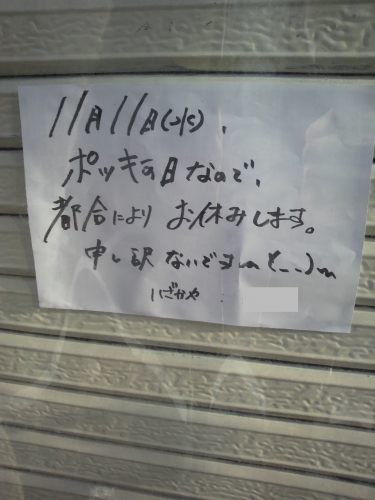 11月11日(水)、
ポッキーの日なので、
都合により お休みします。
申し訳ないですm(_ _)m
いざかや